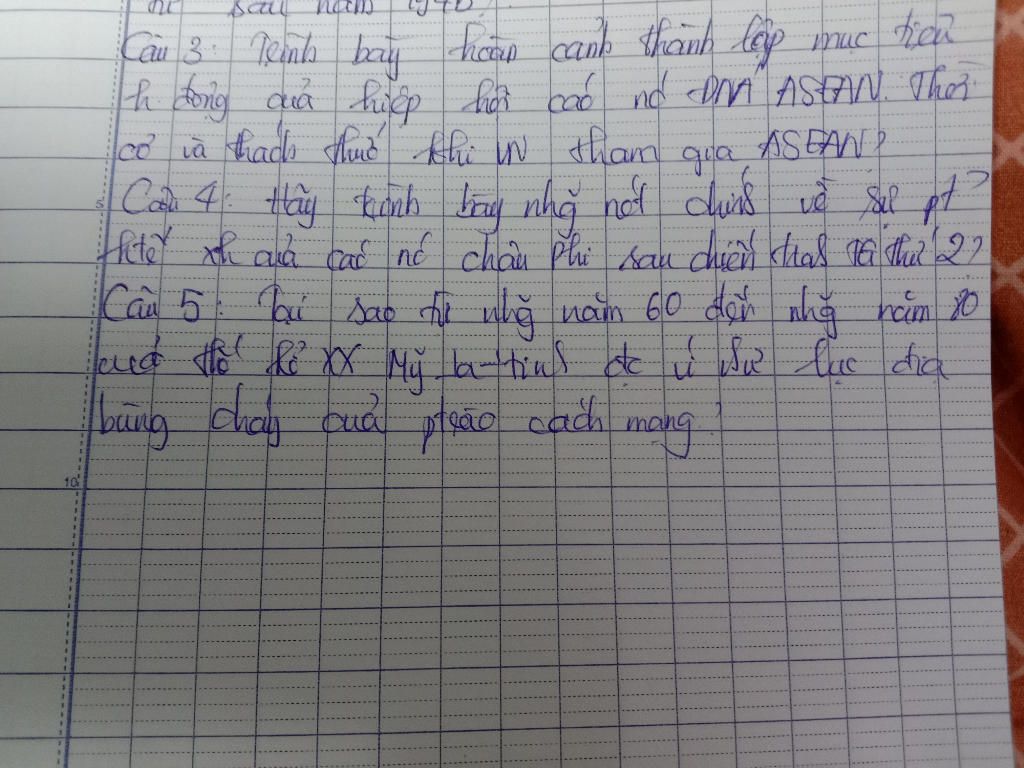 sau năm 1945?
Câu 3: Trình bày hoàn cảnh thành lập mục tiêu
h động quả hiệp hội các nc ĐNA ASEAN. Thời
cơ và thách thức khi VN tham gia ASEAN?
Câu 4: Hãy trình bày nhg nét chính về sự pt
ktế xh quả các nc châu Phi sau chiến tha TG thứ 2?
Câu 5: Tại sao từ nhg năm 60 đến nhg năm 80
của thế kỉ XX Mỹ la-tinh đc ví như lục địa
bùng cháy quả ptrào cách mạng?